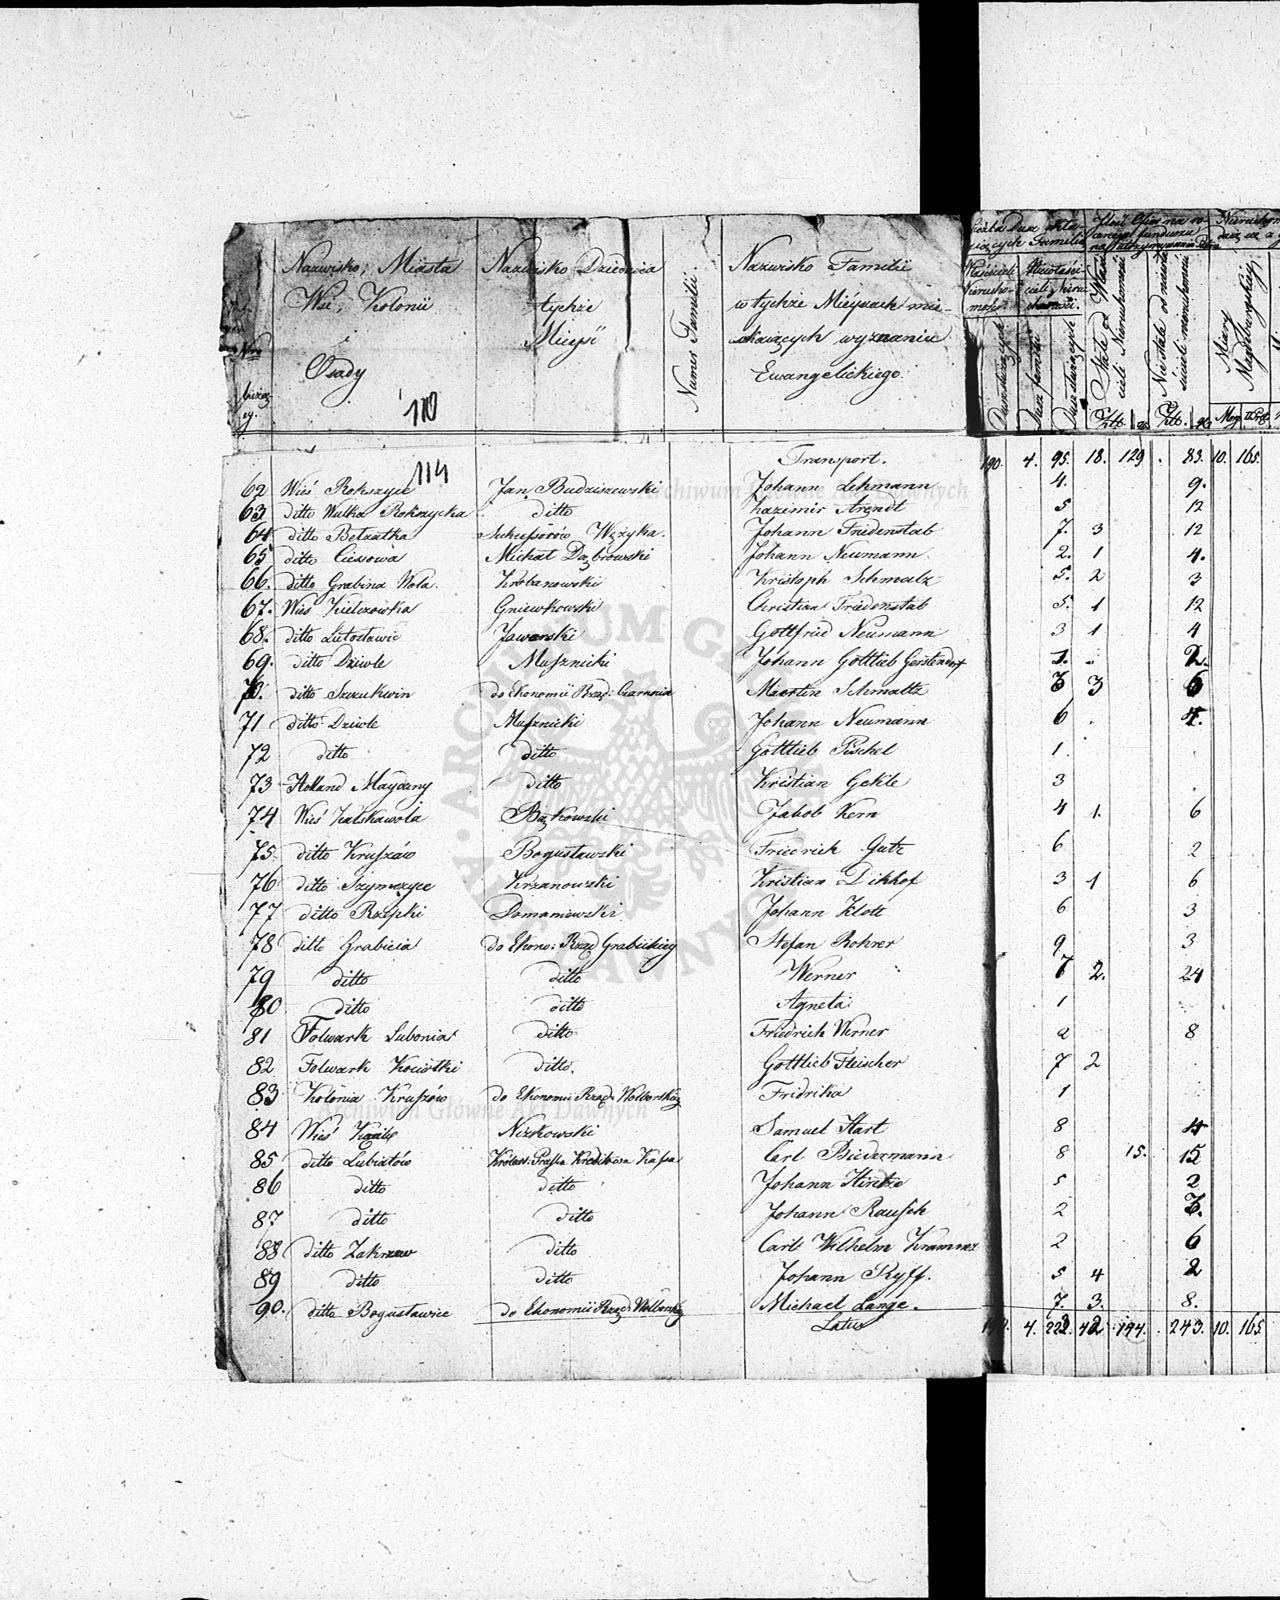 Nazwisko, Miasta Nazwisko Dziedzica Numer Familii. Nazwisko Familii
Wsi, Kolonii tychże w tychże Mieyscach mie-
Mieysc szkaiących wyznania
Osady Ewangelickiego.
110
114
Transport. 190. 4. 95. 18. 129 . 83. 10. 165.
62 Wieś Rokszyce Jan Budziszewski Johann Lehmann 4. 9.
63 ditto Wulka Rokszycka ditto Kazimir Arendt 5 12
64 ditto Bełzatka Sukcessorów Wężyka. Johann Friedenstab 7. 3 12
65 ditto Ciesowa Michał Dąbrowski Johann Neumann. 2. 1 4.
66. ditto Grabina Wola. Krobanowski Kristoph Schmalz 5. 2 3
67. Wieś Kielczowka Gniewkowski Christian Friedenstab 5. 1 12
68. ditto Lutosławic Jaworski Gottfried Neumann 3 1 4
69. ditto Dziwle Musznicki Johann Gottlieb Gerstendorf 1. 2.
70. ditto Szczukwin do Ekonomii Rząd: Czarnocin Martin Schmaltz 3 3 6
71 ditto Dziwle Musznicki Johann Neumann 6 . 4.
72 ditto ditto Gottlieb Pischel 1.
73 Holland Maydany ditto Kristian Gekle 3
74 Wieś Kalskawola Bąkowski Jakob Kern 4 1. 6
75. ditto Kruszów Bogusławski Friedrich Gutz 6 2
76 ditto Szymczyce Krzanowski Kristian Dikhof 3 1 6
77 ditto Rzepki Domaniewski Johann Klott 6 3
78 ditto Grabicia do Ekono: Rząd Grabickiey Stefan Rohrer 9 3
79 ditto ditto Werner 7 2. 24
80 ditto ditto Agneta 1
81 Folwark Lubonia ditto Friedrich Werner 2 8
82 Folwark Kociołki ditto. Gottlieb Fleischer 7 2
83 Kolonia Kruszów do Ekonomii Rząd: Wolborskiey Fridrika 1
84 Wieś Niżkowski Samuel Hart 8 4
85 ditto Lubiatów Carl Biedermann 8 15. 15
86 ditto ditto Johann Hintze 5 2
87 ditto ditto Johann Rausch 2 3.
88 ditto Zakrzew ditto Carl Wilhelm 2 6
89 ditto ditto Johann Ryff. 5 4 2
90. ditto Bogusławice do Ekonomii Rząd: Wolborskiey Michael Lange. 7. 3. 8.
Latus 4. 42 144. . 243. 10. 165